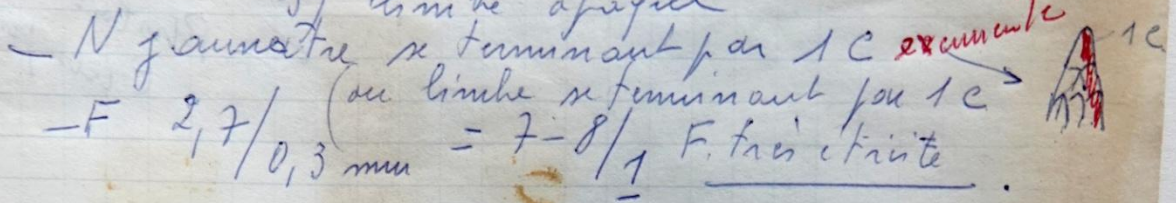 limbe apaqué
- N jaunâtre se terminant par 1 C excurrente 1C
(ou limbe se terminant par 1 C
- F 2,7/0,3 mm = 7-8/1 F. très étroite.